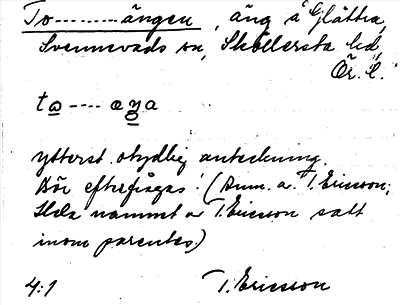 To---------ängen, äng å Glättra,
Svennevads sn, Sköllersta hd,
Ör. l.
to---- æŋa
ytterst otydlig anteckning.
Bör efterfrågas! (Anm. a. T. Ericsson;
Hela namnet av T. Ericsson satt
inom parentes)
4:1 T. Ericsson